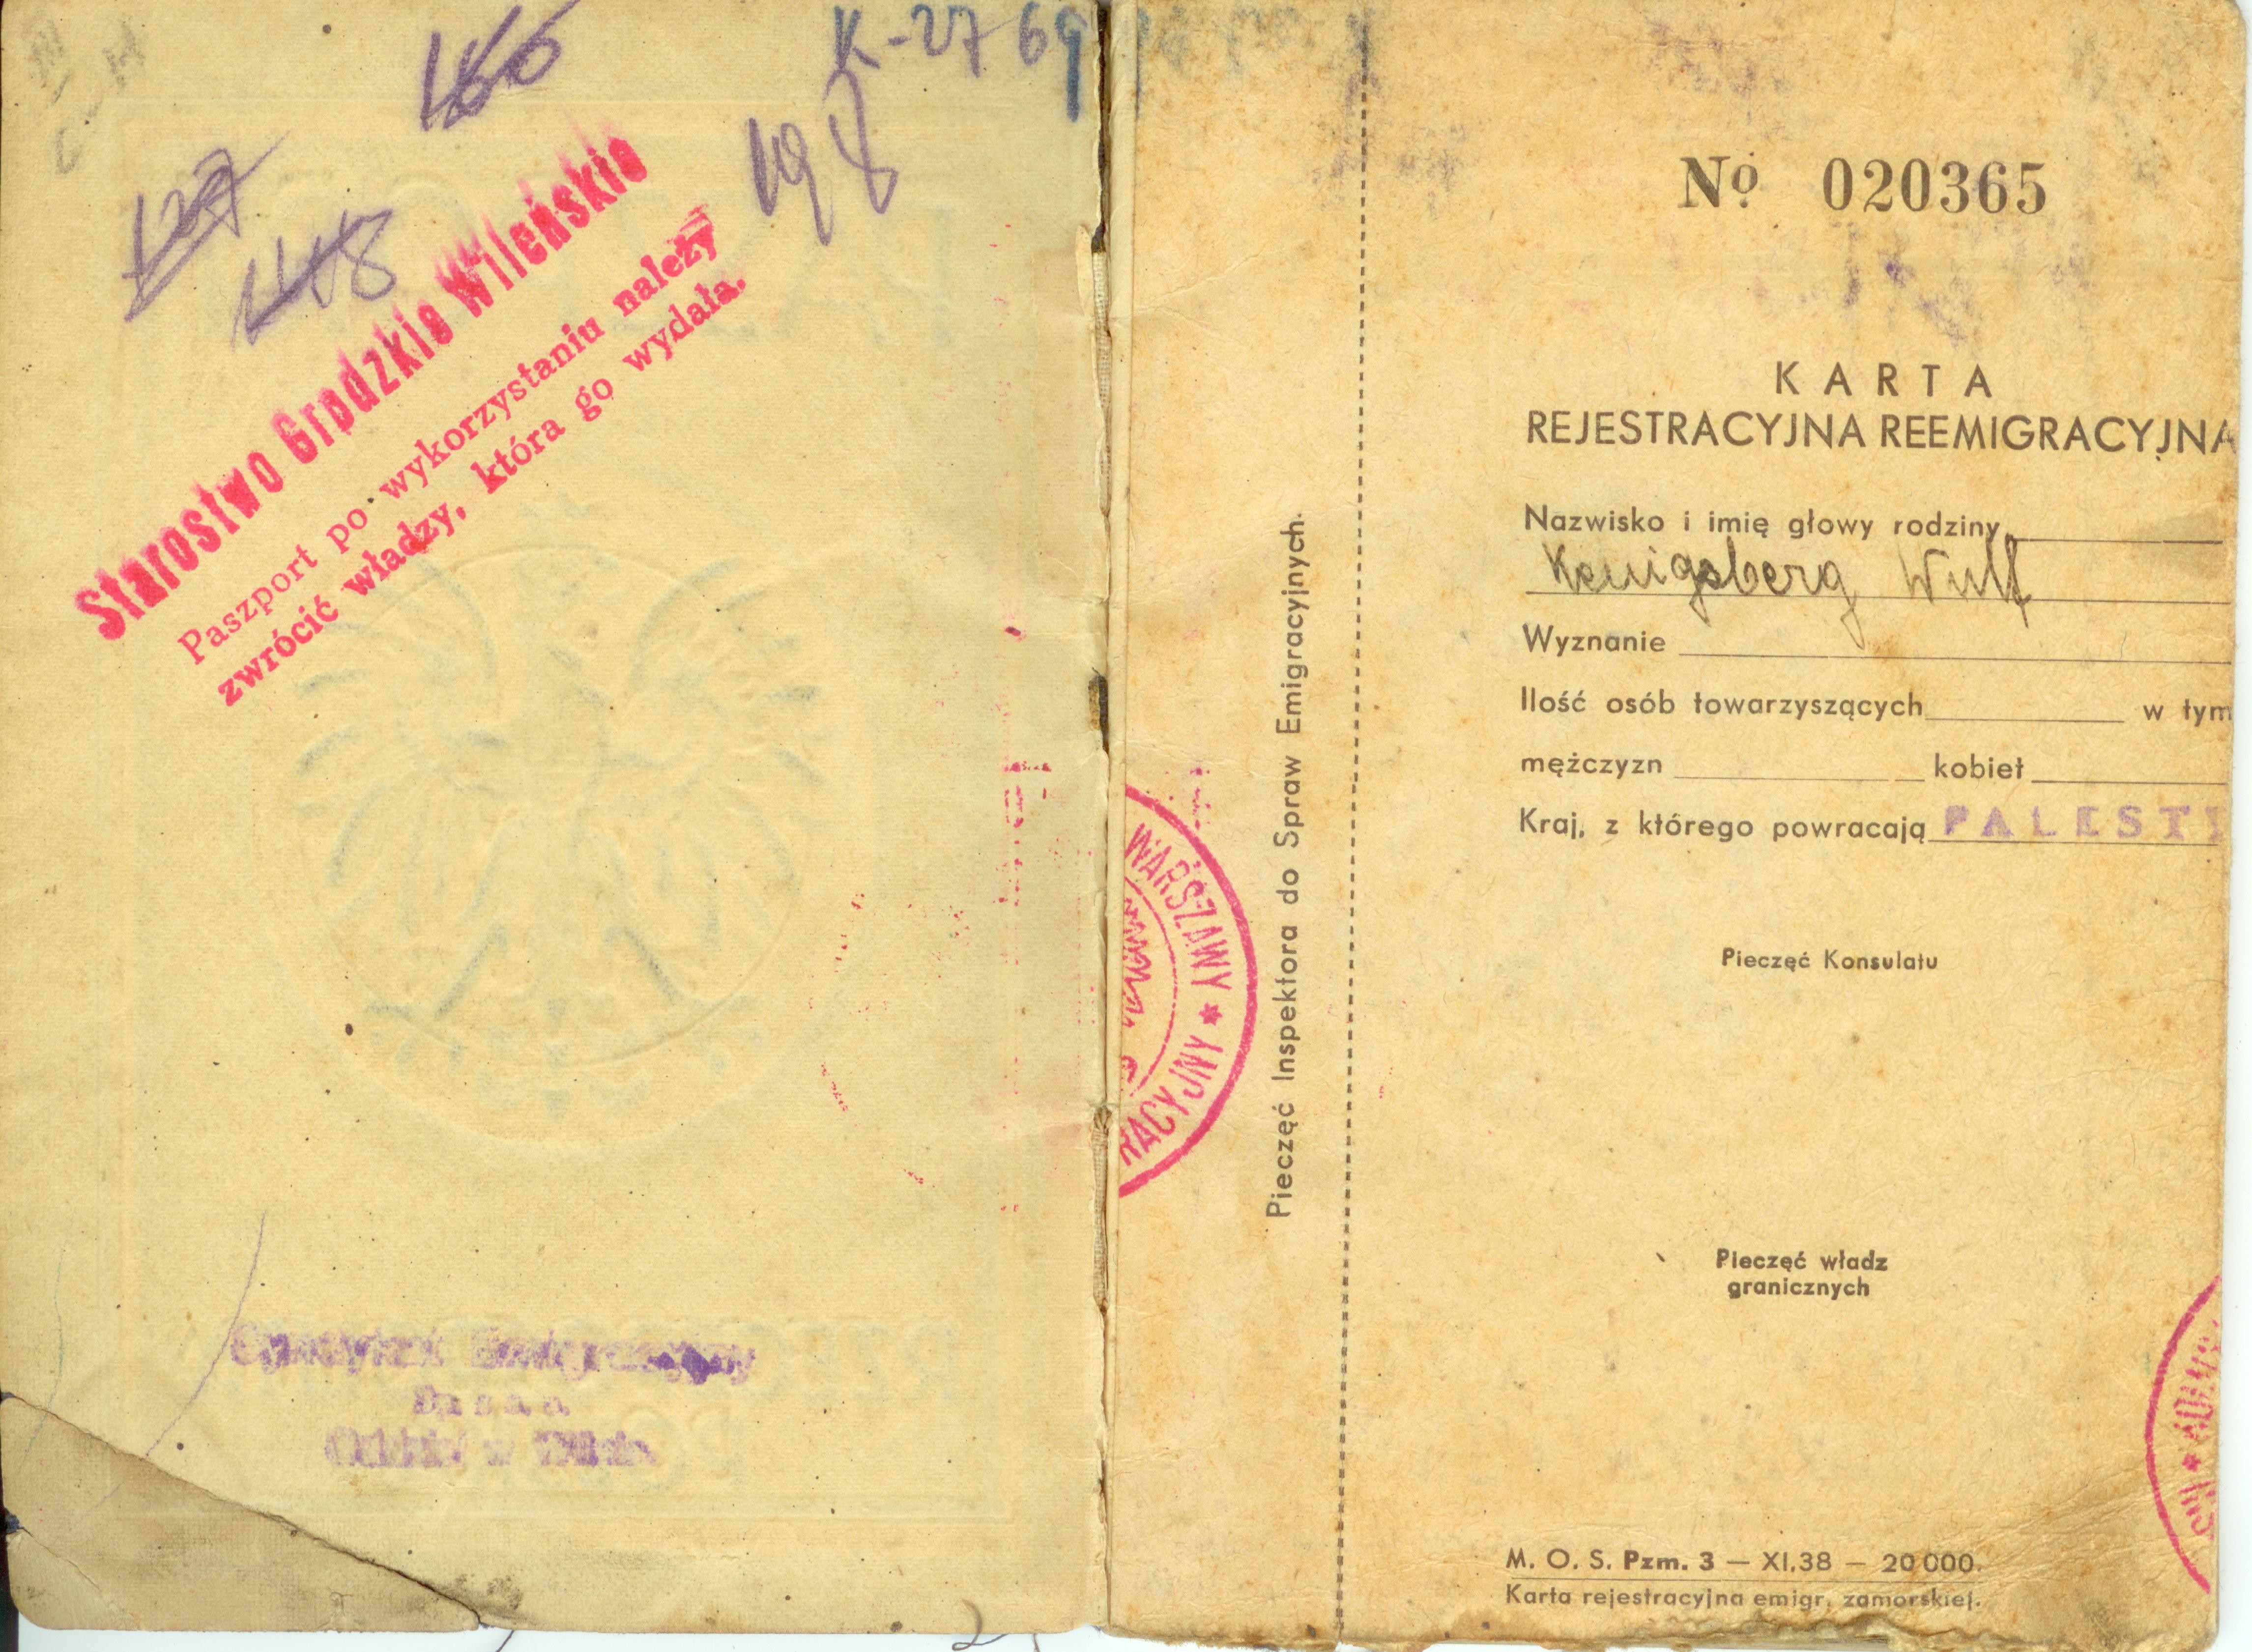 K-27 69
166
127
148
198
Starostwo Grodzkie Wileńskie
Paszport po wykorzystaniu należy
zwrócić władzy, która go wydała.
Syndykat Emigracyjny
Oddział w
WARSZAWY * RACYJNY
Pieczęć Inspektora do Spraw Emigracyjnych.
No 020365
KARTA
REJESTRACYJNA REEMIGRACYJNA
Nazwisko i imię głowy rodziny
Kenigsberg Wulf
Wyznanie
Ilość osób towarzyszących w tym
mężczyzn kobiet
Kraj, z którego powracają PALESTI
Pieczęć Konsulatu
Pieczęć władz
granicznych
M. O. S. Pzm. 3 — XI.38 — 20 000.
Karta rejestracyjna emigr. zamorskiej.